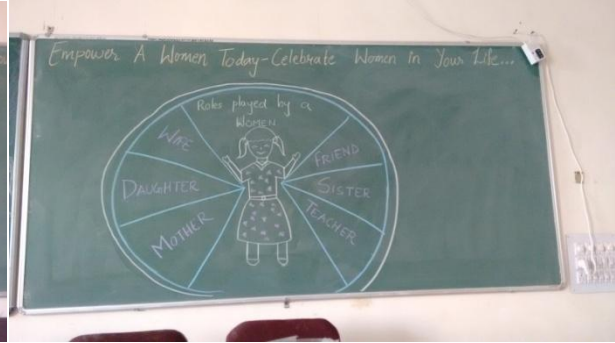 Empower A Women Today-Celebrate Women in Your Life...
Roles played by a
Women
WIFE
DAUGHTER
MOTHER
FRIEND
SISTER
TEACHER